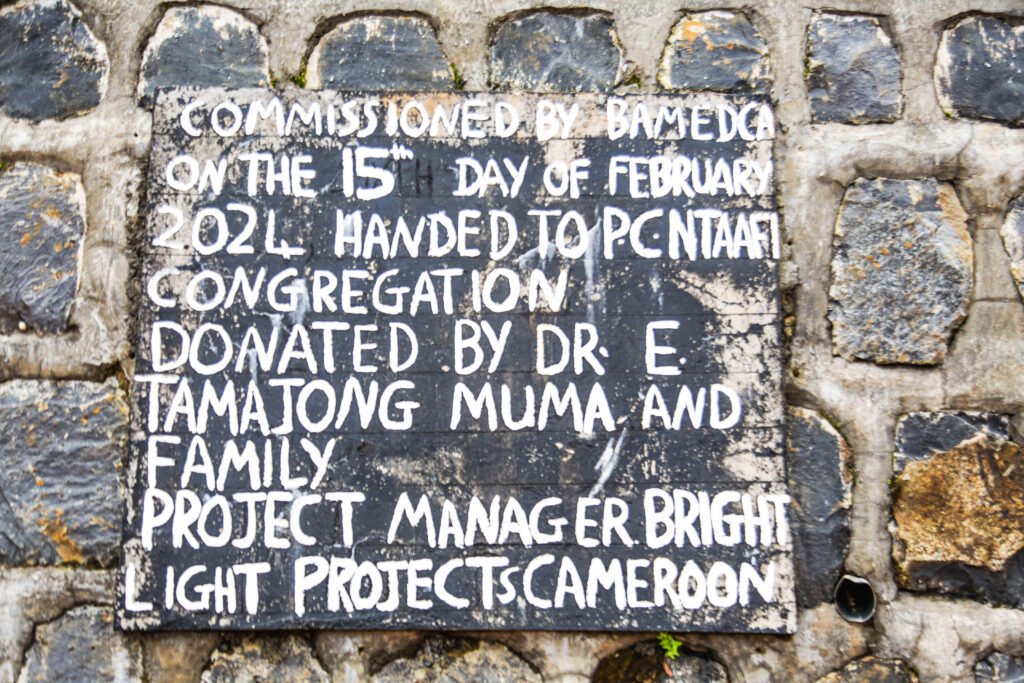 COMMISSIONED BY BAMEDCA
ON THE 15th DAY OF FEBRUARY
2024 HANDED TO P.C NTAAFI
CONGREGATION
DONATED BY DR. E.
TAMAJONG MUMA AND
FAMILY
PROJECT MANAGER BRIGHT
LIGHT PROJECTS CAMEROON